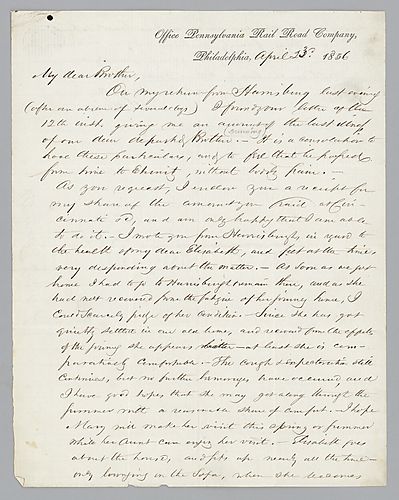 Office Pennsylvania Rail Road Company,
Philadelphia, April 23d. 1856
My dear Brother,
On my return from Harrisburg last evening
(after an absence of several days) I found your letter of the
12th inst. giving me an account of the last illness
of our dear departed Brother. - It is a consolation to
have these particulars, and to feel that he passed
from time to Eternity, without bodily pain. -
As you request, I enclose you a receipt for
my share of the amount you paid
and am only happy that I am able
to do it. - I wrote you from Harrisburgh, in regard to
the health of my dear Elizabeth, and felt at the time,
very desponding about the matter. - As soon as we got
home I had to go to Harrisburgh & remain there, and as she
had not recovered from the fatigue of her journey home, I
could scarcely judge of her condition. - Since she has got
quietly settled in our old home, and recovered from the effects
of the journey she appears better - at least she is com-
paratively comfortable - The cough & expectoration still
continues, but no further hemorrhages have occurred and
I have good hopes that she may get along through the
summer with a reasonable share of comfort. I hope
Mary will make her visit this spring or summer
while her Aunt can enjoy her visit. - Elizabeth goes
about the house, and sits up nearly all the time -
only lounging on the Sofa, when she becomes